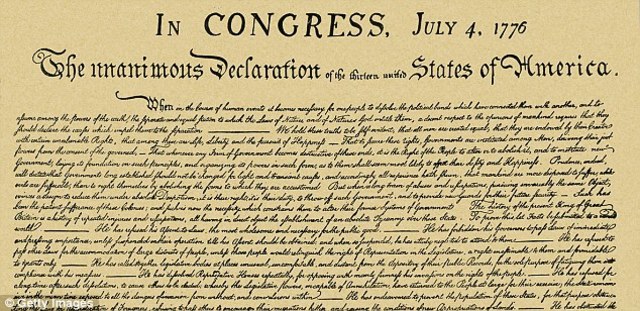 IN CONGRESS, JULY 4, 1776
The unanimous Declaration of the thirteen united States of America.
When in the Course of human events it becomes necessary for one people to dissolve the political bands which have connected them with another, and to
assume among the powers of the earth, the separate and equal station to which the Laws of Nature and of Nature's God entitle them, a decent respect to the opinions of mankind requires that they
should declare the causes which impel them to the separation. — We hold these truths to be self-evident, that all men are created equal, that they are endowed by their Creator
with certain unalienable Rights, that among these are Life, Liberty and the pursuit of Happiness. — That to secure these rights, Governments are instituted among Men, deriving their just
powers from the consent of the governed, — That whenever any Form of Government becomes destructive of these ends, it is the Right of the People to alter or to abolish it, and to institute new
Government, laying its foundation on such principles, and organizing its powers in such form, as to them shall seem most likely to effect their Safety and Happiness. Prudence, indeed,
will dictate that Governments long established should not be changed for light and transient causes; and accordingly all experience hath shewn, that mankind are more disposed to suffer, while
evils are sufferable, than to right themselves by abolishing the forms to which they are accustomed. But when a long train of abuses and usurpations, pursuing invariably the same Object,
evinces a design to reduce them under absolute Despotism, it is their right, it is their duty, to throw off such Government, and to provide new Guards for their future security. — Such has
been the patient sufferance of these Colonies; and such is now the necessity which constrains them to alter their former Systems of Government. The history of the present King of Great
Britain is a history of repeated injuries and usurpations, all having in direct object the establishment of an absolute Tyranny over these States. To prove this, let Facts be submitted to a candid
world. — He has refused his Assent to Laws, the most wholesome and necessary for the public good. — He has forbidden his Governors to pass Laws of immediate
and pressing importance, unless suspended in their operation till his Assent should be obtained; and when so suspended, he has utterly neglected to attend to them. — He has refused to
pass other Laws for the accommodation of large districts of people, unless those people would relinquish the right of Representation in the Legislature, a right inestimable to them and formidable
to tyrants only. — He has called together legislative bodies at places unusual, uncomfortable, and distant from the depository of their public Records, for the sole purpose of fatiguing them into
compliance with his measures. — He has dissolved Representative Houses repeatedly, for opposing with manly firmness his invasions on the rights of the people. — He has refused for
a long time, after such dissolutions, to cause others to be elected; whereby the Legislative powers, incapable of Annihilation, have returned to the People at large for their exercise; the State remain
ing in the mean time exposed to all the dangers of invasion from without, and convulsions within. — He has endeavoured to prevent the population of these States; for that purpose obstruc
of Foreigners; refusing to pass others to encourage their migrations hither, and raising the conditions of new Appropriations of Lands. — He has obstructed the
© Getty Images